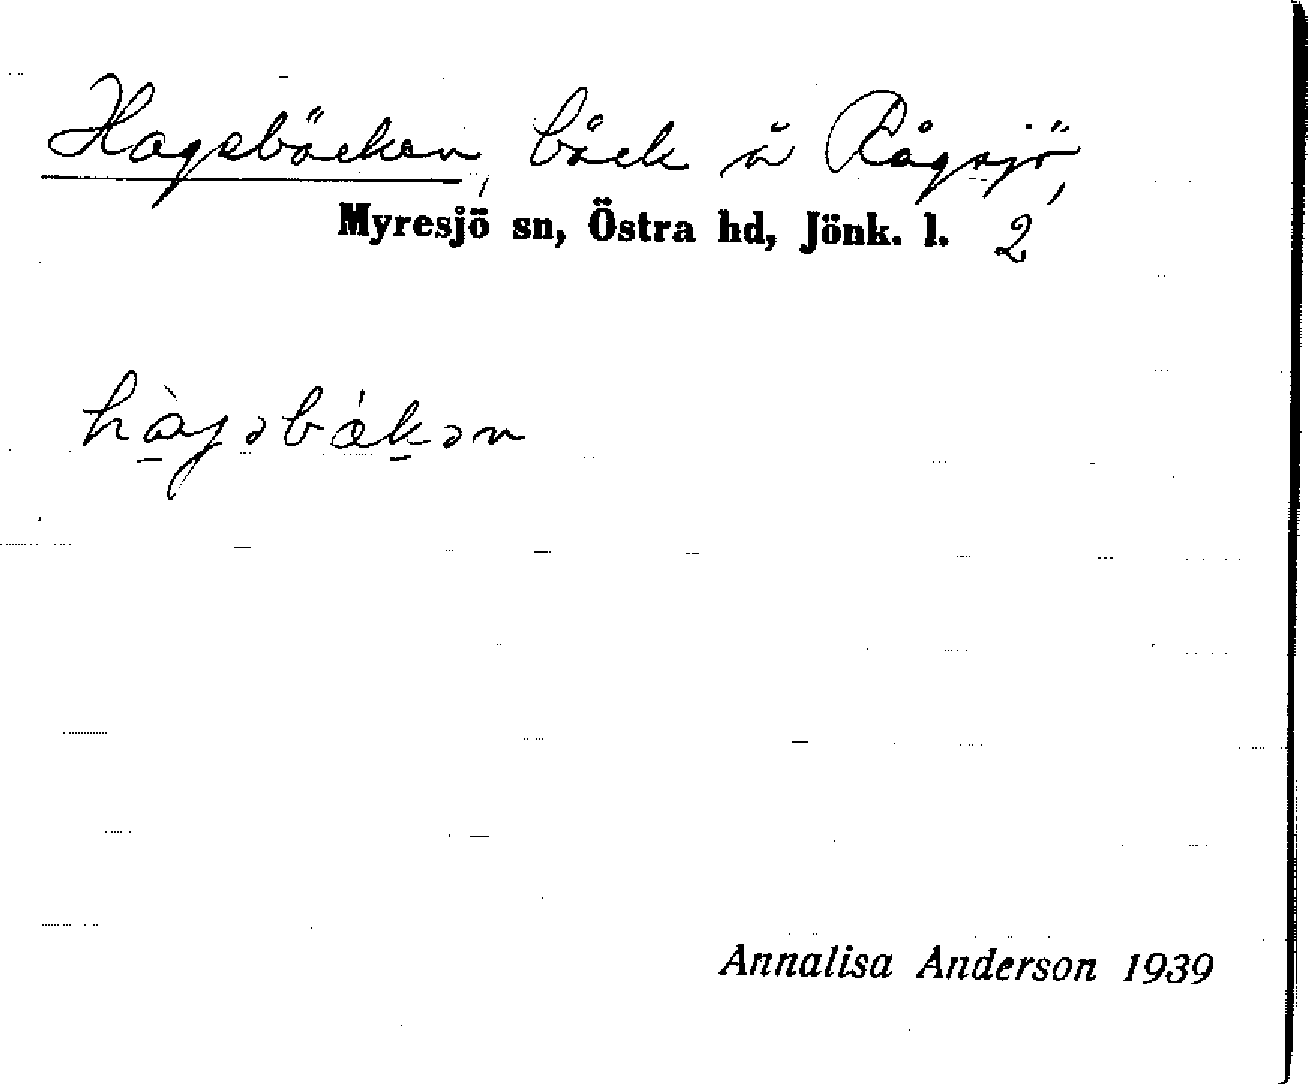 Hagabäcken, bäck å Rågsjö,
Myresjö sn, Östra hd, Jönk. l. 2
Annalisa Anderson 1939